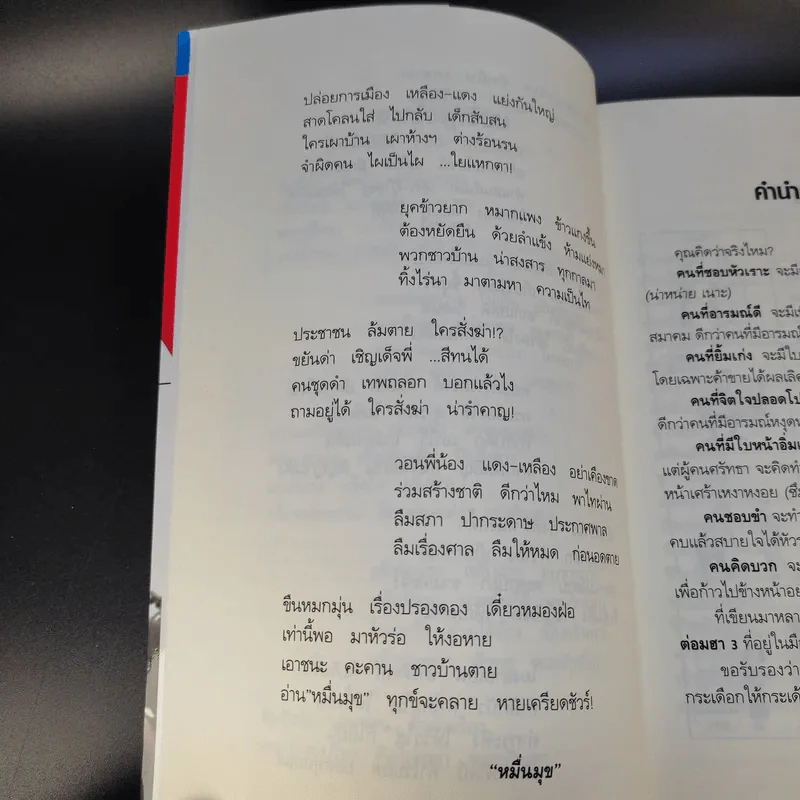 ปล่อยการเมือง เหลือง-แดง แย่งกันใหญ่
สาดโคลนใส่ ไปกลับ เด็กสับสน
ใครเผาบ้าน เผาห้างฯ ต่างร้อนรน
จำผิดคน ไผเป็นไผ ...ใยแหกตา!
ยุคข้าวยาก หมากแพง ข้าวแกงขึ้น
ต้องหยัดยืน ด้วยลำแข้ง ห้ามแย่งหมา
พวกชาวบ้าน น่าสงสาร ทุกกาลมา
ทิ้งไร่นา มาตามหา ความเป็นไท
ประชาชน ล้มตาย ใครสั่งฆ่า!?
ขยันด่า เชิญเด็จพี่ ...สีทนได้
คนชุดดำ เทพถลอก บอกแล้วไง
ถามอยู่ได้ ใครสั่งฆ่า น่ารำคาญ!
วอนพี่น้อง แดง-เหลือง อย่าเคืองขาด
ร่วมสร้างชาติ ดีกว่าไหม พาไทผ่าน
ลืมสภา ปากระดาษ ประกาศพาล
ลืมเรื่องศาล ลืมให้หมด ก่อนอดตาย
ขืนหมกมุ่น เรื่องปรองดอง เดี๋ยวหมองฝ่อ
เท่านี้พอ มาหัวร่อ ให้งอหาย
เอาชนะ คะคาน ชาวบ้านตาย
อ่าน"หมื่นมุข" ทุกข์จะคลาย หายเครียดชัวร์!
"หมื่นมุข"
คำนำ
คุณคิดว่าจริงไหม?
คนที่ชอบหัวเราะ จะมี
(น่าหน่าย เนาะ)
คนที่อารมณ์ดี จะมี
สมาคม ดีกว่าคนที่มีอารมณ์
คนที่ยิ้มเก่ง จะมีใบ
โดยเฉพาะค้าขายได้ผลเลิศ
คนที่จิตใจปลอดโป
ดีกว่าคนที่มีอารมณ์หงุด
คนที่มีใบหน้าอิ่มเ
แต่ผู้คนศรัทธา จะคิดทำ
หน้าเศร้าเหงาหงอย (ซึ
คนชอบขำ จะทำ
คบแล้วสบายใจได้หัวร
คนคิดบวก จะ
เพื่อก้าวไปข้างหน้าอย
ที่เขียนมาหลา
ต่อมฮา 3 ที่อยู่ในมือ
ขอรับรองว่า
กระเดือกให้กระเด้